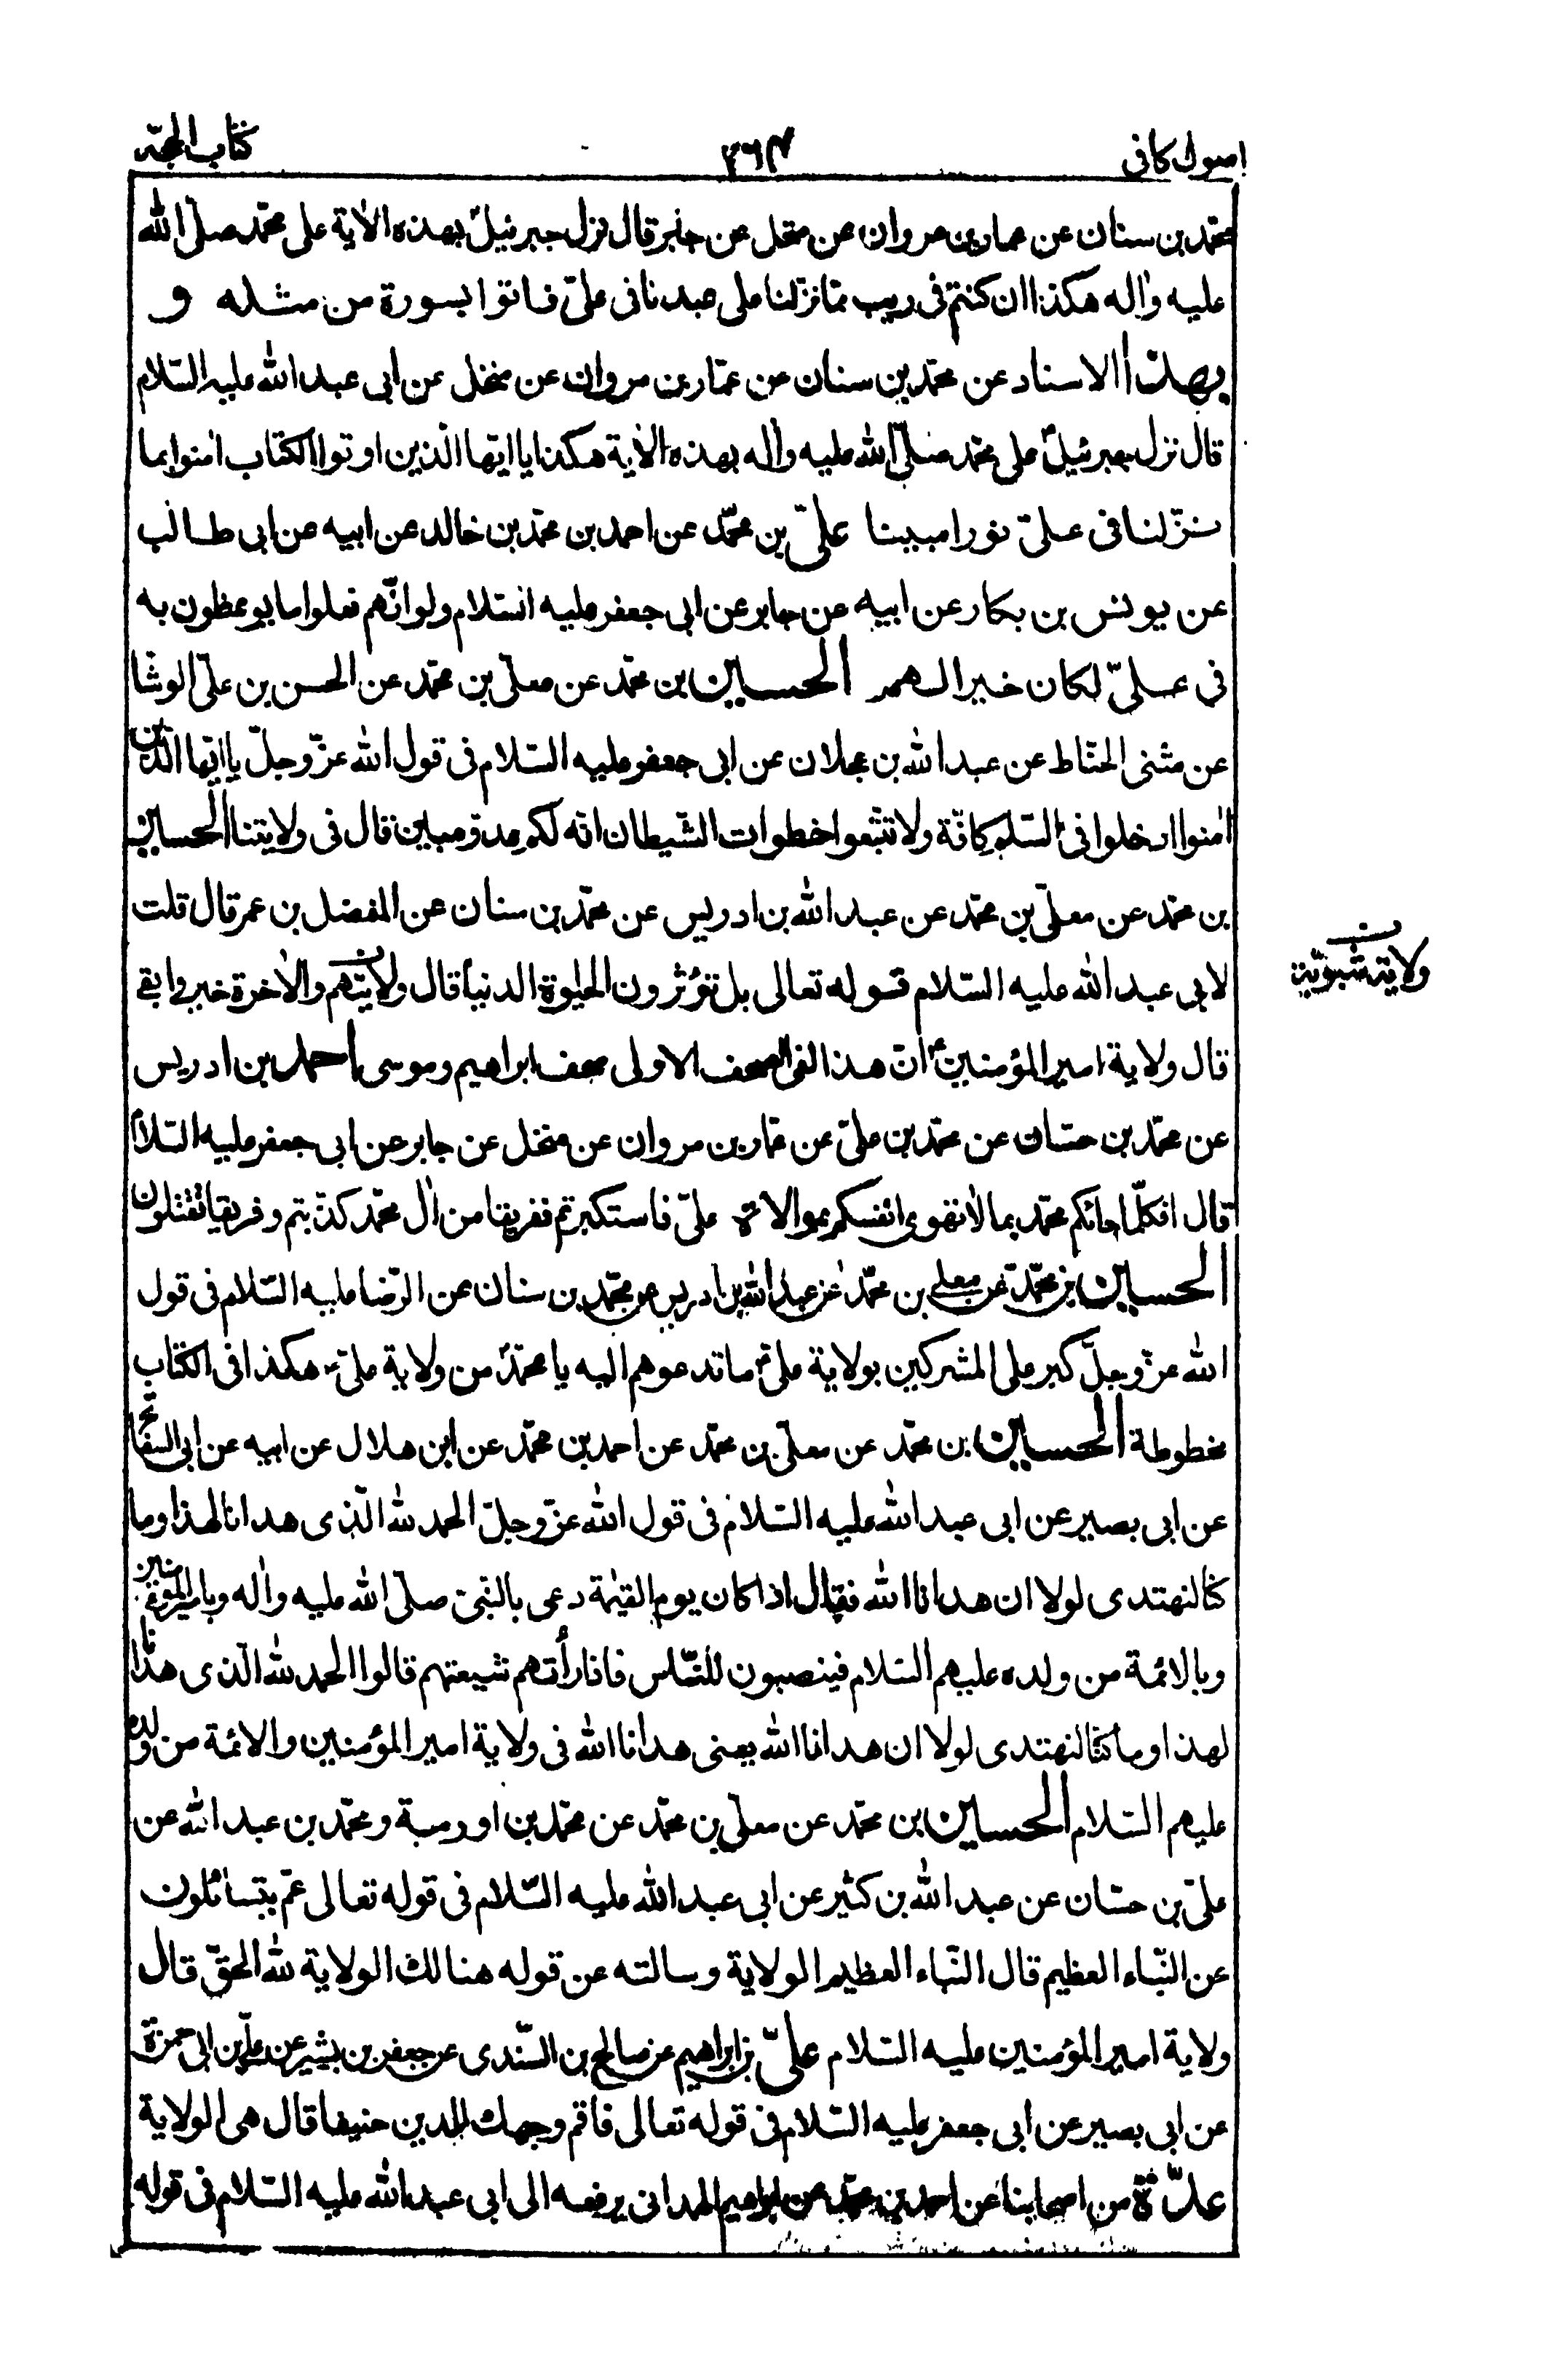 اصول كافى ٢٦٤ كتاب الحجّة
محمّد بن سنان عن عمار بن مروان عن منخل عن جابر قال نزل جبرئيلؑ بهذه الاٰية على محمّد صلّى الله
عليه واٰله هكذا ان كنتم فى ريب ممّا نزلنا على عبدنا فى علىّ فاتوا بسورة من مثله و
بهذا الاسناد عن محمّد بن سنان عن عمّار بن مروان عن منخل عن ابى عبد الله عليه السّلام
قال نزل جبرئيلؑ على محمّد صلّى الله عليه واٰله بهذه الاٰية هكذا يا ايّها الّذين اوتوا الكتاب اٰمنوا بما
نزّلنا فى علىّ نورا مبينا علىّ بن محمّد عن احمد بن محمّد بن خالد عن ابيه عن ابى طالب
عن يونس بن بكار عن ابيه عن جابر عن ابى جعفر عليه السّلام ولو انّهم فعلوا ما يوعظون به
فى علىّ لكان خيرا لهم الحسين بن محمّد عن معلىّ بن محمّد عن الحسن بن علىّ الوشّا
عن مثنى الحنّاط عن عبد الله بن عجلان عن ابى جعفر عليه السّلام فى قول الله عزّ وجلّ يا ايّها الذين
اٰمنوا ادخلوا فى السّلم كافّة ولا تتّبعوا خطوات الشّيطان انّه لكم عدوّ مبين قال فى ولايتنا الحسين
بن محمّد عن معلىّ بن محمّد عن عبد الله بن ادريس عن محمّد بن سنان عن المفضل بن عمر قال قلت
لابى عبد الله عليه السّلام قوله تعالى بل تؤثرون الحيٰوة الدنيا قال ولايتهم والاٰخرة خير وابقى
ولاية شبويّة
قال ولاية امير المؤمنينؑ انّ هذا لفى الصحف الاولى صحف ابراهيم وموسى احمد بن ادريس
عن محمّد بن حسّان عن محمّد بن علىّ عن عمّار بن مروان عن منخل عن جابر عن ابى جعفر عليه السّلام
قال افكلّما جائكم محمّد بما لا تهوى انفسكم بموالاة علىّ فاستكبرتم ففريقا من اٰل محمّد كذّبتم وفريقا تقتلون
الحسين بن محمّد عن معلى بن محمّد عن عبد الله بن ادريس عن محمّد بن سنان عن الرّضا عليه السّلام فى قول
الله عزّ وجلّ كبر على المشركين بولاية علىّ ما تدعوهم اليه يا محمّد من ولاية علىّ هكذا فى الكتاب
مخطوطة الحسين بن محمّد عن معلىّ بن محمّد عن احمد بن محمّد عن ابن هلال عن ابيه عن ابى السفاتج
عن ابى بصير عن ابى عبد الله عليه السّلام فى قول الله عزّ وجلّ الحمد لله الّذى هدانا لهذا وما
كنّا لنهتدى لولا ان هدانا الله فقال اذا كان يوم القيٰمة دعى بالنّبىّ صلّى الله عليه واٰله وبامير المؤمنين
وبالائمة من ولده عليهم السّلام فينصبون للنّاس فاذا رأتهم شيعتهم قالوا الحمد لله الّذى هدانا
لهذا وما كنّا لنهتدى لولا ان هدانا الله يعنى هدانا الله فى ولاية امير المؤمنين والائمّة من ولده
عليهم السّلام الحسين بن محمّد عن معلىّ بن محمّد عن محمّد بن اورمة ومحمّد بن عبد الله عن
علىّ بن حسّان عن عبد الله بن كثير عن ابى عبد الله عليه السّلام فى قوله تعالى عمّ يتسائلون
عن النّباء العظيم قال النّباء العظيم الولاية وسالته عن قوله هنالك الولاية لله الحقّ قال
ولاية امير المؤمنين عليه السّلام علىّ بن ابراهيم عن صالح بن السّندى عن جعفر بن بشير عن علىّ بن ابى حمزة
عن ابى بصير عن ابى جعفر عليه السّلام فى قوله تعالى فاقم وجهك للدين حنيفا قال هى الولاية
عدّة من اصحابنا عن احمد بن محمّد عن ابراهيم الهمدانى يرفعه الى ابى عبد الله عليه السّلام فى قوله